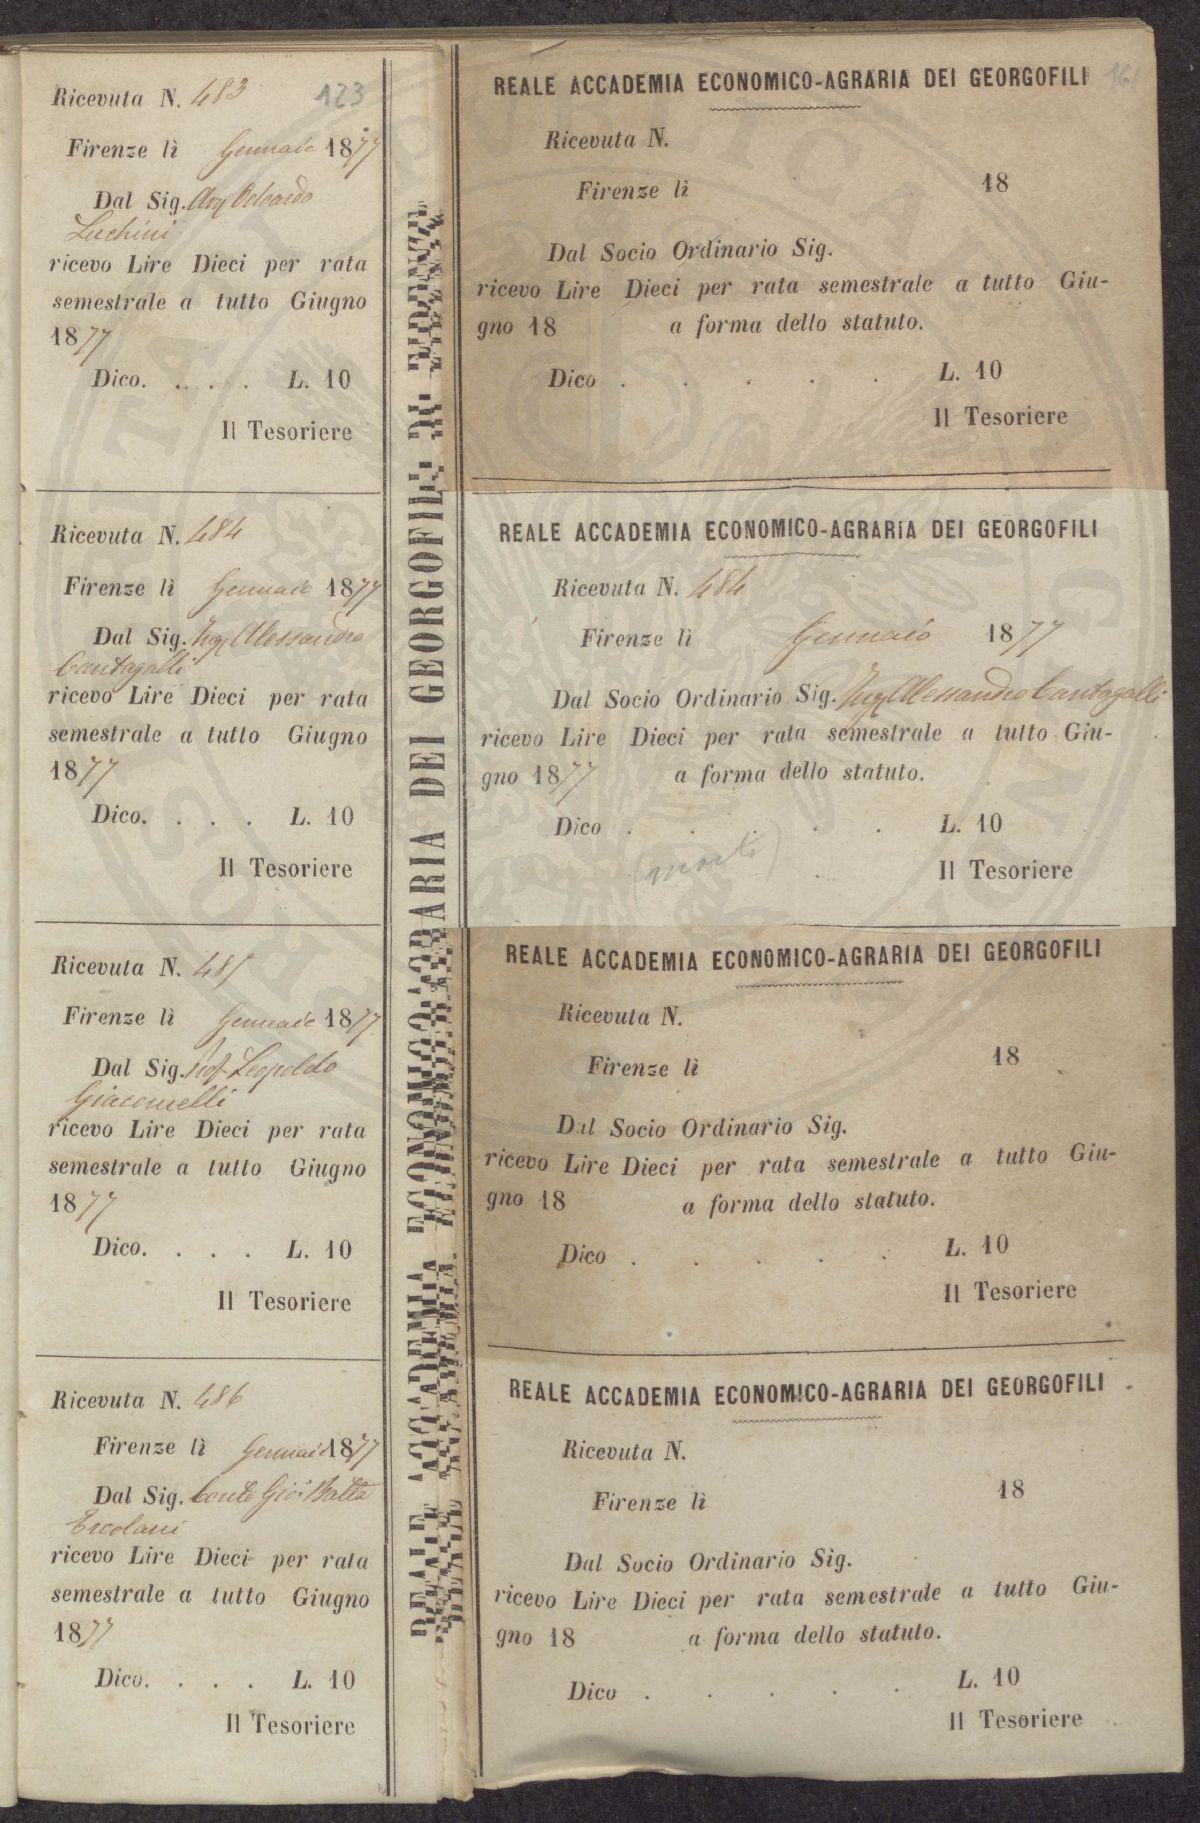 Ricevuta N. 483
123
Firenze lì Gennaio 1877
Dal Sig. Avv Odoardo
Luchini
ricevo Lire Dieci per rata
semestrale a tutto Giugno
1877
Dico. . . . . L. 10
Il Tesoriere
Ricevuta N. 484
Firenze lì Gennaio 1877
Dal Sig. Ing Alessandro
Cantagalli
ricevo Lire Dieci per rata
semestrale a tutto Giugno
1877
Dico. . . . L. 10
Il Tesoriere
Ricevuta N. 485
Firenze lì Gennaio 1877
Dal Sig. Prof. Leopoldo
Giacomelli
ricevo Lire Dieci per rata
semestrale a tutto Giugno
1877
Dico. . . . L. 10
Il Tesoriere
Ricevuta N. 486
Firenze lì Gennaio 1877
Dal Sig. Conte Gio: Batta
Ercolani
ricevo Lire Dieci per rata
semestrale a tutto Giugno
1877
Dico. . . . L. 10
Il Tesoriere
REALE ACCADEMIA ECONOMICO-AGRARIA DEI GEORGOFILI DI FIRENZE
REALE ACCADEMIA ECONOMICO-AGRARIA DEI GEORGOFILI
161
Ricevuta N.
Firenze lì 18
Dal Socio Ordinario Sig.
ricevo Lire Dieci per rata semestrale a tutto Giu-
gno 18 a forma dello statuto.
Dico . . . . . L. 10
Il Tesoriere
REALE ACCADEMIA ECONOMICO-AGRARIA DEI GEORGOFILI
Ricevuta N. 484
Firenze lì Gennaio 1877
Dal Socio Ordinario Sig. Ing Alessandro Cantagalli
ricevo Lire Dieci per rata semestrale a tutto Giu-
gno 1877 a forma dello statuto.
Dico . . . . . L. 10
(morto)
Il Tesoriere
REALE ACCADEMIA ECONOMICO-AGRARIA DEI GEORGOFILI
Ricevuta N.
Firenze lì 18
Dal Socio Ordinario Sig.
ricevo Lire Dieci per rata semestrale a tutto Giu-
gno 18 a forma dello statuto.
Dico . . . . . L. 10
Il Tesoriere
REALE ACCADEMIA ECONOMICO-AGRARIA DEI GEORGOFILI
Ricevuta N.
Firenze lì 18
Dal Socio Ordinario Sig.
ricevo Lire Dieci per rata semestrale a tutto Giu-
gno 18 a forma dello statuto.
Dico . . . . . L. 10
Il Tesoriere